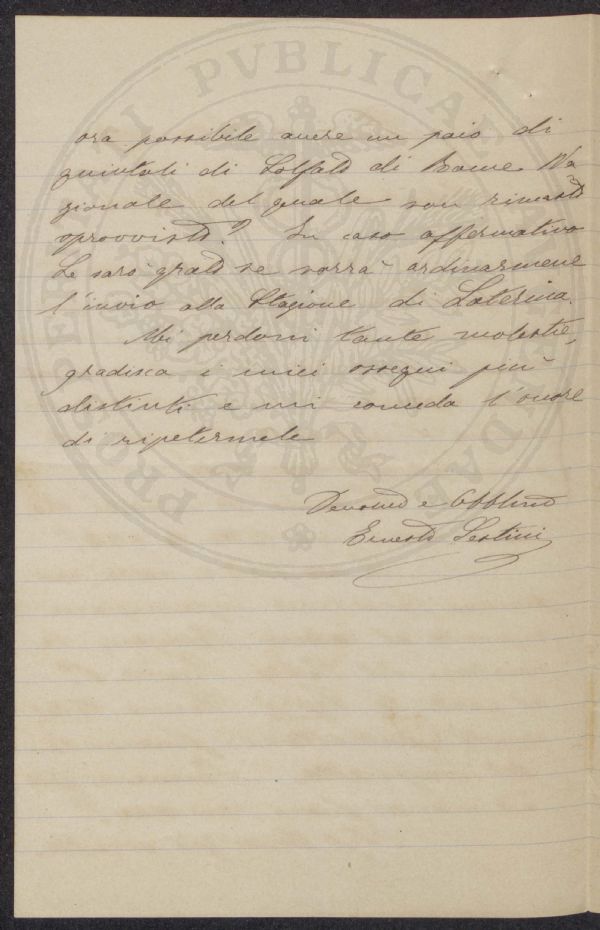 ora possibile avere un paio di
quintali di Solfato di Rame Na
zionale del quale son rimasto
sprovvisto? In caso affermativo
Le sarò grato se vorrà ordinarmene
l'invio alla Stazione di Laterina.
Mi perdoni tante molestie,
gradisca i miei ossequi più
distinti e mi conceda l'onore
di ripetermele
Devotmo e Obblmo
Ernesto Sestini